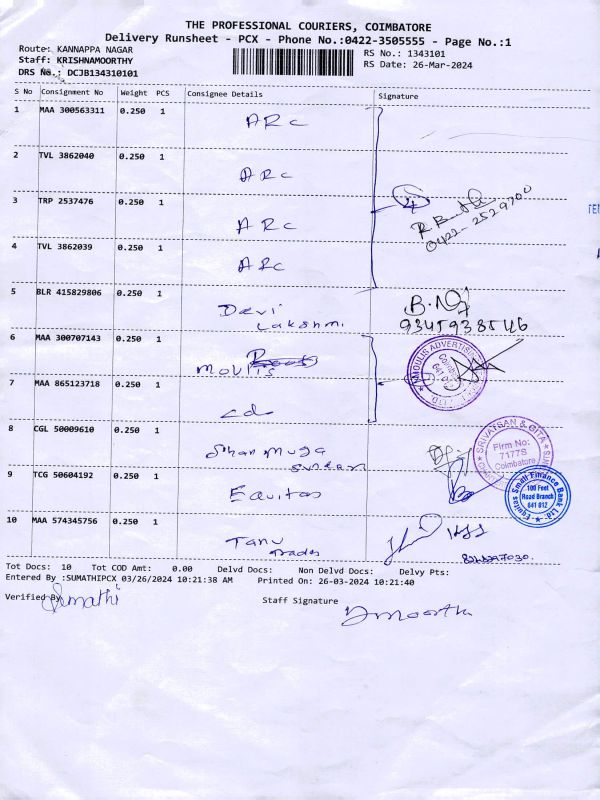 THE PROFESSIONAL COURIERS, COIMBATORE
Delivery Runsheet - PCX - Phone No.:0422-3505555 - Page No.:1
Route: KANNAPPA NAGAR
RS No.: 1343101
Staff: KRISHNAMOORTHY
RS Date: 26-Mar-2024
DRS No.: DCJB134310101
S No Consignment No Weight PCS Consignee Details Signature
1 MAA 300563311 0.250 1 ARC
2 TVL 3862040 0.250 1 ARC
3 TRP 2537476 0.250 1 ARC
0422-2529700
4 TVL 3862039 0.250 1 ARC
5 BLR 415829806 0.250 1 Devi Lakshmi
9345938546
6 MAA 300707143 0.250 1 Moulis
MOULIS ADVERTISING
7 MAA 865123718 0.250 1 cdo
8 CGL 50009610 0.250 1 Shanmuga Sundaram
SRIVATSAN & GITA
Firm No:
7177S
Coimbatore
9 TCG 50604192 0.250 1 Equitas
Equitas Small Finance Bank Ltd.
100 Feet
Road Branch
641 012
10 MAA 574345756 0.250 1 Tanu Trades
Tot Docs: 10 Tot COD Amt: 0.00 Delvd Docs: Non Delvd Docs: Delvy Pts:
Entered By :SUMATHIPCX 03/26/2024 10:21:38 AM Printed On: 26-03-2024 10:21:40
Verified By Sumathi
Staff Signature